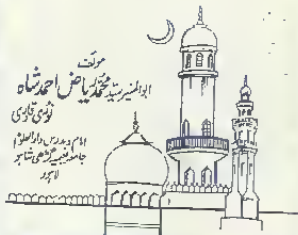 مؤلف
ابوالمنیر سید محمد ریاض احمد شاہ
نوری قادری
امام و مدرس دارالعلوم
جامعہ نعیمیہ گڑھی شاہو
لاہور